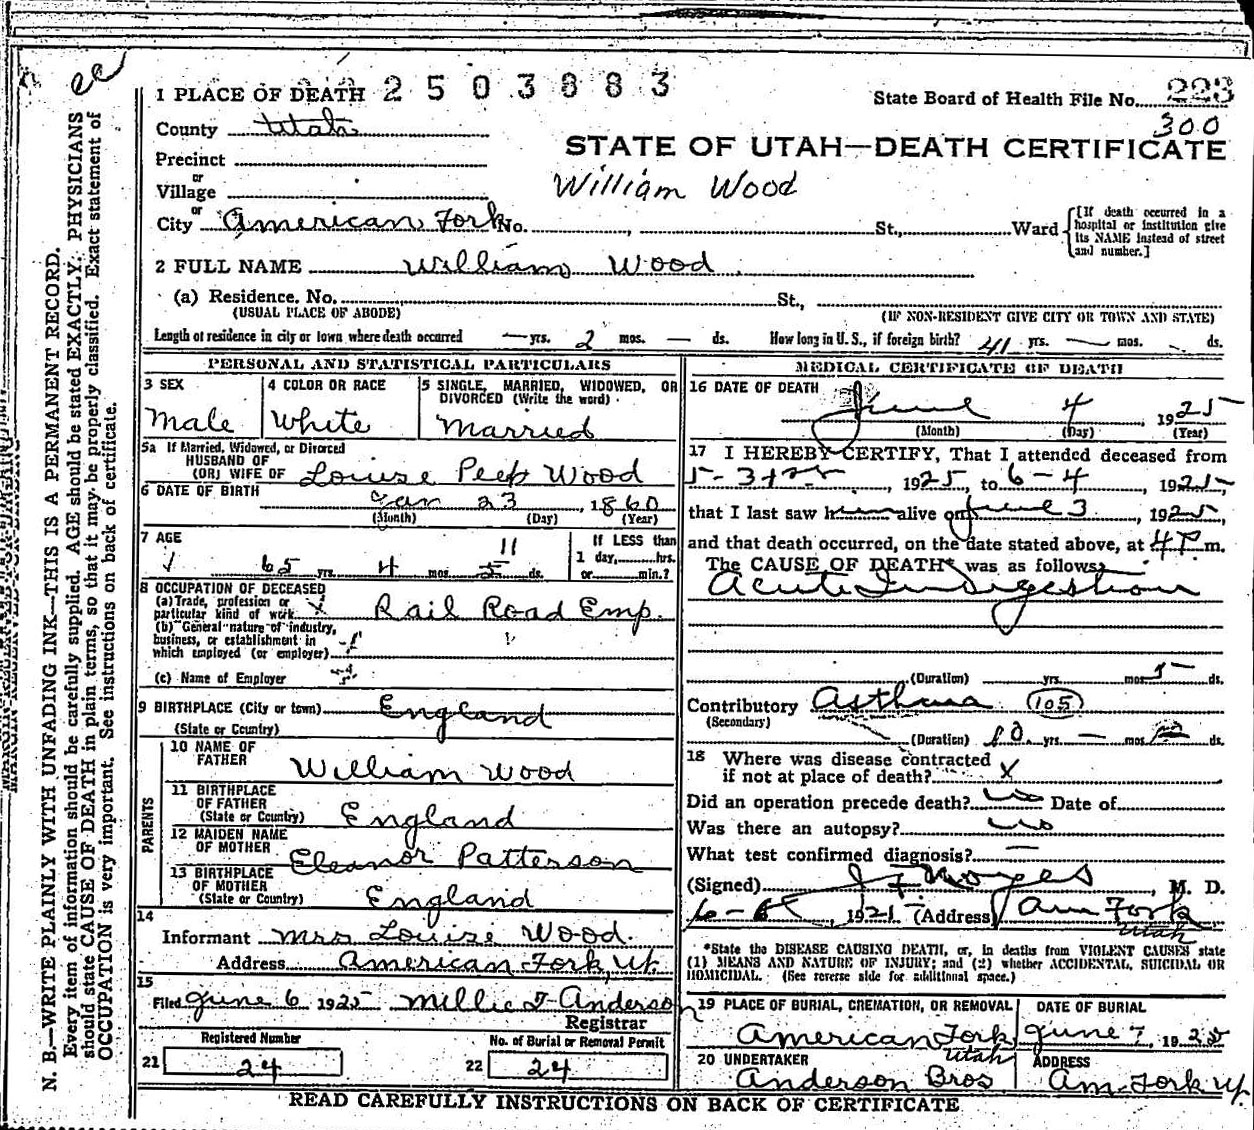 1 PLACE OF DEATH 2503883
State Board of Health File No. 223
300
County Utah
STATE OF UTAH—DEATH CERTIFICATE
Precinct
or
Village
William Wood
or
City American Fork No. , St., Ward
[If death occurred in a
hospital or institution give
its NAME instead of street
and number.]
2 FULL NAME William Wood
(a) Residence. No. St.,
(USUAL PLACE OF ABODE) (IF NON-RESIDENT GIVE CITY OR TOWN AND STATE)
Length of residence in city or town where death occurred — yrs. 2 mos. — ds. How long in U. S., if foreign birth? 41 yrs. — mos. - ds.
PERSONAL AND STATISTICAL PARTICULARS
3 SEX 4 COLOR OR RACE 5 SINGLE, MARRIED, WIDOWED, OR
DIVORCED (Write the word)
Male White Married
5a If Married, Widowed, or Divorced
HUSBAND OF
(OR) WIFE OF Louise Peek Wood
6 DATE OF BIRTH Jan 23, 1860
(Month) (Day) (Year)
7 AGE 11 If LESS than
1 day, hrs.
65 yrs. 4 mos. 5 ds. or min.?
8 OCCUPATION OF DECEASED
(a) Trade, profession or
particular kind of work Rail Road Emp.
(b) General nature of industry,
business, or establishment in
which employed (or employer)
(c) Name of Employer
9 BIRTHPLACE (City or town) England
(State or Country)
PARENTS
10 NAME OF
FATHER William Wood
11 BIRTHPLACE
OF FATHER
(State or Country) England
12 MAIDEN NAME
OF MOTHER Eleanor Patterson
13 BIRTHPLACE
OF MOTHER
(State or Country) England
14
Informant Mrs Louise Wood.
Address American Fork, Ut.
15
Filed June 6 1925 Millie D Anderson
Registrar
Registered Number No. of Burial or Removal Permit
21 24 22 24
MEDICAL CERTIFICATE OF DEATH
16 DATE OF DEATH
June 4 1925
(Month) (Day) (Year)
17 I HEREBY CERTIFY, That I attended deceased from
5-31, 1925, to 6-4, 1925,
that I last saw him alive on June 3, 1925,
and that death occurred, on the date stated above, at 4 P m.
The CAUSE OF DEATH* was as follows:
Acute Indigestion
(Duration) yrs. mos. 5 ds.
Contributory Asthma 105
(Secondary)
(Duration) 10 yrs. — mos. ds.
18 Where was disease contracted
if not at place of death? X
Did an operation precede death? no Date of
Was there an autopsy? no
What test confirmed diagnosis? —
(Signed) J F Noyes, M. D.
6- , 1925 (Address) Am Fork
Utah
*State the DISEASE CAUSING DEATH, or, in deaths from VIOLENT CAUSES state
(1) MEANS AND NATURE OF INJURY; and (2) whether ACCIDENTAL, SUICIDAL OR
HOMICIDAL. (See reverse side for additional space.)
19 PLACE OF BURIAL, CREMATION, OR REMOVAL DATE OF BURIAL
American Fork June 7, 1925
Utah
20 UNDERTAKER ADDRESS
Anderson Bros Am. Fork Ut.
READ CAREFULLY INSTRUCTIONS ON BACK OF CERTIFICATE
N. B.—WRITE PLAINLY WITH UNFADING INK—THIS IS A PERMANENT RECORD.
Every item of information should be carefully supplied. AGE should be stated EXACTLY. PHYSICIANS
should state CAUSE OF DEATH in plain terms, so that it may be properly classified. Exact statement of
OCCUPATION is very important. See instructions on back of certificate.